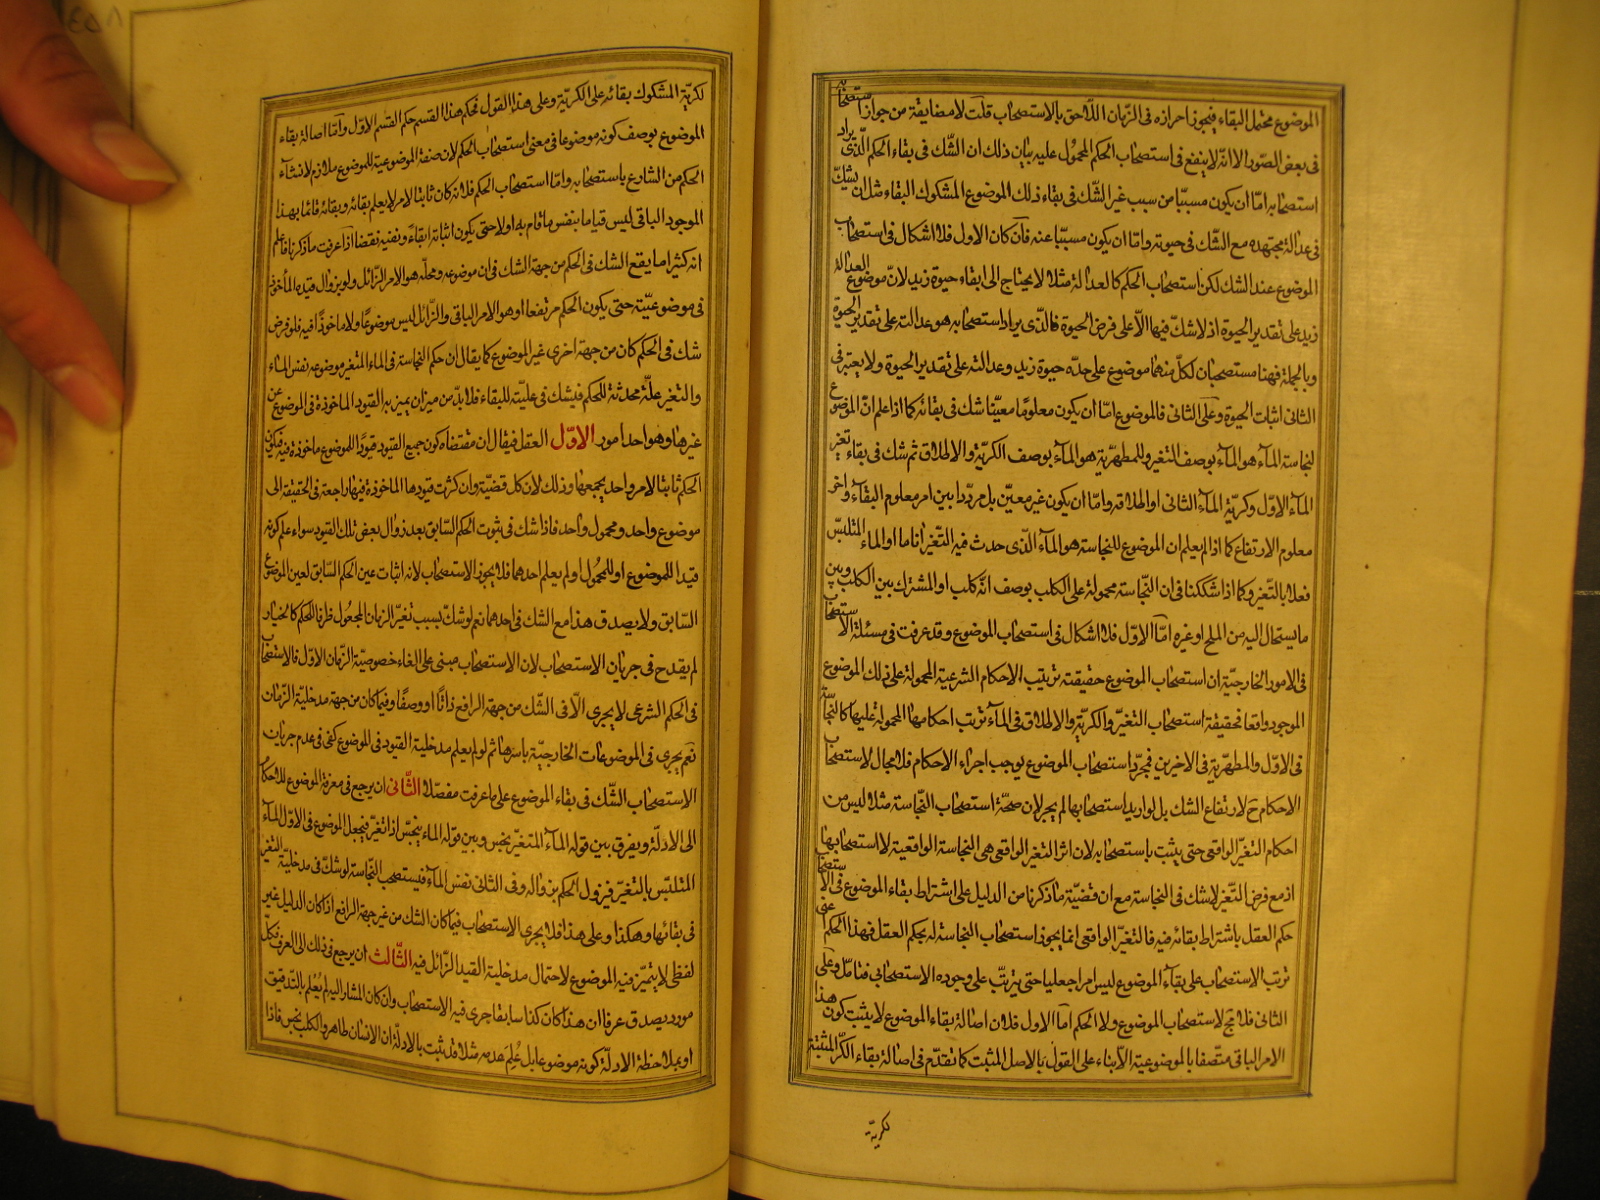 الموضوع محتمل البقاء فيجوز احرازه فى الزمان اللاحق بالاستصحاب قلت لا مضايقة من جواز استصحابه
فى بعض الصور الا انه لا ينفع فى استصحاب الحكم المحمول عليه بيان ذلك ان الشك فى بقاء الحكم الذى يراد
استصحابه امّا ان يكون مسببا من سبب غير الشك فى بقاء ذلك الموضوع المشكوك البقاء مثل ان يشك
فى عدالة مجتهده مع الشك فى حيوته وامّا ان يكون مسببا عنه فان كان الاول فلا اشكال فى استصحاب
الموضوع عند الشك لكن استصحاب الحكم كالعدالة مثلا لا يحتاج الى ابقاء حيوة زيد لانّ موضوع العدالة
زيد على تقدير الحيوة اذ لا شك فيها الّا على فرض الحيوة فالذى يراد استصحابه هو عدالته على تقدير الحيوة
وبالجملة فهنا مستصحبان لكل منهما موضوع على حده حيوة زيد وعدالته على تقدير الحيوة ولا يعتبر فى
الثانى اثبات الحيوة وعلى الثانى فالموضوع امّا ان يكون معلوما معيّنا شك فى بقائه كما اذا علم انّ الموضوع
لنجاسة الماء هو الماء بوصف التغير وللمطهرية هو الماء بوصف الكرّية والاطلاق ثم شك فى بقاء تغير
الماء الاول وكرية الماء الثانى او اطلاقه وامّا ان يكون غير معيّن بل مردّدا بين امر معلوم البقاء واخر
معلوم الارتفاع كما اذا لم يعلم ان الموضوع للنجاسة هو الماء الذى حدث فيه التغير اناما او الماء المتلبس
فعلا بالتغير وكما اذا شككنا فى ان النجاسة محمولة على الكلب بوصف انه كلب او المشترك بين الكلب وبين
ما يستحال اليه من الملح او غيره امّا الاول فلا اشكال فى استصحاب الموضوع وقد عرفت فى مسئلة الاستصحاب
فى الامور الخارجيّة ان استصحاب الموضوع حقيقته ترتيب الاحكام الشرعية المحمولة على ذلك الموضوع
الموجود واقعا فحقيقة استصحاب التغيّر والكرية والاطلاق فى الماء ترتب احكامها المحمولة عليها كالنجاسة
فى الاول والمطهرية فى الاخرين فمجرد استصحاب الموضوع يوجب اجراء الاحكام فلا مجال لاستصحاب
الاحكام ح لارتفاع الشك بل لو اريد استصحابها لم يجر لان صحة استصحاب النجاسة مثلا ليس من
احكام التغير الواقعى حتى يثبت باستصحابه لان اثر التغير الواقعى هى النجاسة الواقعية لا استصحابها
اذ مع فرض التغير لا شك فى النجاسة مع ان قضيّة ما ذكرنا من الدليل على اشتراط بقاء الموضوع فى الاستصحاب
حكم العقل باشتراط بقائه فيه فالتغير الواقعى انما يجوز استصحاب النجاسة له بحكم العقل فهذا الحكم اعنى
ترتب الاستصحاب على بقاء الموضوع ليس امرا جعليا حتى يترتب على وجوده الاستصحابى فتامّل وعلى
الثانى فلا مج لاستصحاب الموضوع ولا الحكم امّا الاول فلان اصالة بقاء الموضوع لا يثبت كون هذا
الامر الباقى متصفا بالموضوعية الّا بناء على القول بالاصل المثبت كما تقدّم فى اصالة بقاء الكر المثبتة
لكرية
لكريّة المشكوك بقائه على الكريّة وعلى هذا القول فحكم هذا القسم حكم القسم الاول وامّا اصالة بقاء
الموضوع بوصف كونه موضوعا فى معنى استصحاب الحكم لان صفة الموضوعية للموضوع ملازم لانشاء
الحكم من الشارع باستصحابه وامّا استصحاب الحكم فلانه كان ثابتا لامر لا يعلم بقائه وبقائه قائما بهذا
الموجود الباقى ليس قياما بنفس ما قام به اولا حتى يكون اثباته ابقاء ونفيه نقضا اذا عرفت ما ذكرنا فاعلم
انه كثيرا ما يقع الشك فى الحكم من جهة الشك فى ان موضوعه ومحله هو الامر الزائل ولو بزوال قيده المأخوذ
فى موضوعيّته حتى يكون الحكم مرتفعا او هو الامر الباقى والزائل ليس موضوعا ولا ماخوذا فيه فلو فرض
شك فى الحكم كان من جهة اخرى غير الموضوع كما يقال ان حكم النجاسة فى الماء المتغير موضوعه نفس الماء
والتغير علّة محدثة للحكم فيشك فى عليّته للبقاء فلا بدّ من ميزان يميز به القيود الماخوذة فى الموضوع عن
غيرها وهو احد امور الاوّل العقل فيقال ان مقتضاه كون جميع القيود قيودا للموضوع ماخوذة فيه فيكون
الحكم ثابتا لامر واحد يجمعها وذلك لان كل قضيّة وان كثرت قيودها الماخوذة فيها راجعة فى الحقيقة الى
موضوع واحد ومحمول واحد فاذا شك فى ثبوت الحكم السابق بعد زوال بعض تلك القيود سواء علم كونه
قيدا للموضوع او للمحمول او لم يعلم احدهما فلا يجوز الاستصحاب لانه اثبات عين الحكم السابق لعين الموضوع
السابق ولا يصدق هذا مع الشك فى احدهما نعم لو شك بسبب تغير الزمان المجعول ظرفا للحكم كالخيار
لم يقدح فى جريان الاستصحاب لان الاستصحاب مبنى على الغاء خصوصيّة الزمان الاول فالاستصحاب
فى الحكم الشرعى لا يجرى الّا فى الشك من جهة الرافع ذاتا او وصفا وفيما كان من جهة مدخلية الزمان
نعم يجرى فى الموضوعات الخارجيّة باسرها ثم لو لم يعلم مدخلية القيود فى الموضوع كفى فى عدم جريان
الاستصحاب الشك فى بقاء الموضوع على ما عرفت مفصّلا الثّانى ان يرجع فى معرفة الموضوع للاحكام
الى الادلّة ويفرق بين قوله الماء المتغير نجس وبين قوله الماء ينجس اذا تغير فيجعل الموضوع فى الاول الماء
المتلبّس بالتغيّر فيزول الحكم بزواله وفى الثانى نفس الماء فيستصحب النجاسة لو شك فى مدخلية التغير
فى بقائها وهكذا وعلى هذا فلا يجرى الاستصحاب فيما كان الشك من غير جهة الرافع اذا كان الدليل غير
لفظى لا يتميّز فيه الموضوع لاحتمال مدخلية القيد الزائل فيه الثّالث ان يرجع فى ذلك الى العرف فكلّ
مورد يصدق عرفا ان هذا كان كذا سابقا جرى فيه الاستصحاب وان كان المشار اليه لم يُعلم بالتدقيق
او بملاحظة الادلّة كونه موضوعا بل عُلِم عدمه مثلا قد ثبت بالادلّة ان الانسان طاهر والكلب نجس فاذا